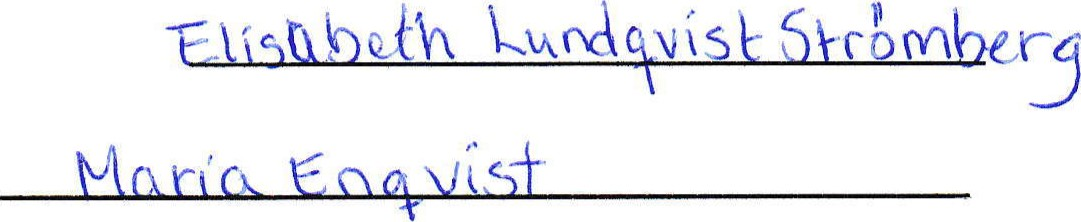 Elisabeth Lundqvist Strömberg
Maria Enqvist